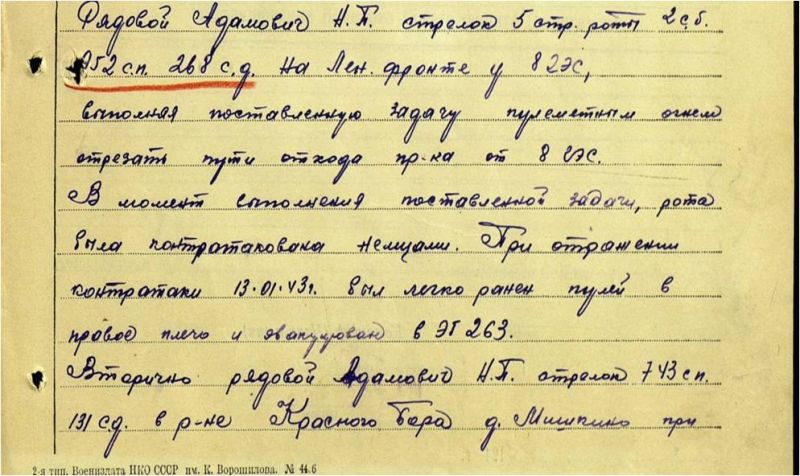 Рядовой Адамович Н.П. стрелок 5 стр. роты 2 с.б.
952 с.п. 268 с.д. на Лен. фронте у 8 ГЭС,
выполняя поставленную задачу пулеметным огнем
отрезать пути отхода пр-ка от 8 ГЭС.
В момент выполнения поставленной задачи, рота
была контратакована немцами. При отражении
контратаки 13.01.43г. был легко ранен пулей в
правое плечо и эвакуирован в ЭГ 263.
Вторично рядовой Адамович Н.П. стрелок 743 сп.
131 с.д. в р-не Красного Бора д. Мишкино при
2-я тип. Воениздата НКО СССР им. К. Ворошилова. № 44.6